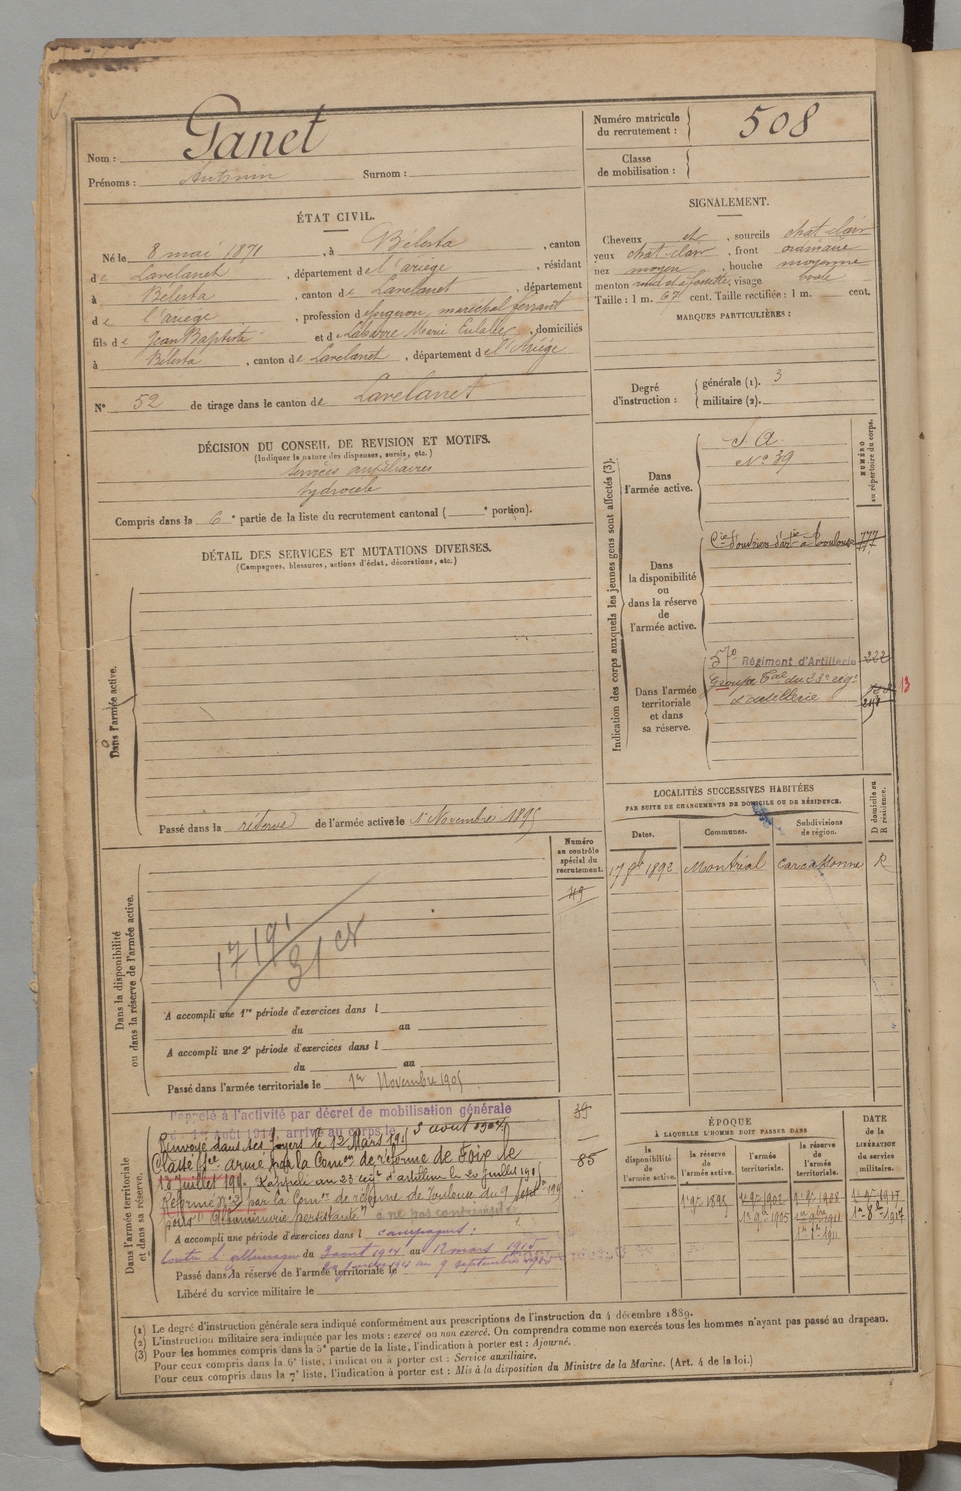 Nom : Ganet
Prénoms : Antonin Surnom :
Numéro matricule du recrutement : 508
Classe de mobilisation :
ÉTAT CIVIL.
Né le 8 mai 1871, à Bélesta, canton
de Lavelanet, département de l'ariege, résidant
à Bélesta, canton de Lavelanet, département
de l'ariege, profession de forgeron, maréchal ferrant
fils de Jean Baptiste et de Labarre Marie Eulalie, domiciliés
à Bélesta, canton de Lavelanet, département de l'Ariège
N° 52 de tirage dans le canton de Lavelanet
SIGNALEMENT.
Cheveux et, sourcils chat-clair
yeux chat-clair, front ordinaire
nez moyen, bouche moyenne
menton rond et à fossette, visage ovale
Taille : 1 m. 67 cent. Taille rectifiée : 1 m. cent.
MARQUES PARTICULIÈRES :
Degré d'instruction : générale (1). 3
militaire (2).
DÉCISION DU CONSEIL DE REVISION ET MOTIFS.
(Indiquer la nature des dispenses, sursis, etc.)
services auxiliaires
hydrocèle
Compris dans la 6e partie de la liste du recrutement cantonal ( e portion).
DÉTAIL DES SERVICES ET MUTATIONS DIVERSES.
(Campagnes, blessures, actions d'éclat, décorations, etc.)
Dans l'armée active.
Passé dans la réserve de l'armée active le 1er Novembre 1895
Indication des corps auxquels les jeunes gens sont affectés (3).
NUMÉRO au répertoire du corps.
Dans l'armée active.
S. A.
N° 39
Dans la disponibilité ou dans la réserve de l'armée active.
Cie d'ouvriers d'artie à Toulouse 777
Dans l'armée territoriale et dans sa réserve.
57e Régiment d'Artillerie 222
Groupe Tal du 23e rég.
d'artillerie
13
LOCALITÉS SUCCESSIVES HABITÉES
PAR SUITE DE CHANGEMENTS DE DOMICILE OU DE RÉSIDENCE.
Dates. Communes. Subdivisions de région. D domicile ou R résidence.
17 8b 1892 Montréal Carcassonne R
Numéro au contrôle spécial du recrutement.
49
Dans la disponibilité ou dans la réserve de l'armée active.
A accompli une 1re période d'exercices dans l
du au
A accompli une 2e période d'exercices dans l
du au
Passé dans l'armée territoriale le 1er Novembre 1905
39
85
Dans l'armée territoriale et dans sa réserve.
Rappelé à l'activité par décret de mobilisation générale
du 1er Août 1914, arrivé au corps le 3 août 1914
Renvoyé dans ses foyers le 12 Mars 191
Classé Sce armé par la Comon de réforme de Foix le
Rappelé au 23 régt d'artillerie le 20 juillet 191
Réformé n° 2 par la Comon de réforme de Toulouse du 9 sept 191
pour "Albuminurie persistante"
A accompli une période d'exercices dans l campagnes :
contre l'allemagne du 3 aout 1914 au 12 mars 1915
Passé dans la réserve de l'armée territoriale le
Libéré du service militaire le
ÉPOQUE
À LAQUELLE L'HOMME DOIT PASSER DANS
la disponibilité de l'armée active. la réserve de l'armée active. l'armée territoriale. la réserve de l'armée territoriale.
DATE de la LIBÉRATION du service militaire.
1er 9bre 1895
(1) Le degré d'instruction générale sera indiqué conformément aux prescriptions de l'instruction du 4 décembre 1889.
(2) L'instruction militaire sera indiquée par les mots : exercé ou non exercé. On comprendra comme non exercés tous les hommes n'ayant pas passé au drapeau.
(3) Pour les hommes compris dans la 5e partie de la liste, l'indication à porter est : Ajourné.
Pour ceux compris dans la 6e liste, l'indication à porter est : Service auxiliaire.
Pour ceux compris dans la 7e liste, l'indication à porter est : Mis à la disposition du Ministre de la Marine. (Art. 4 de la loi.)